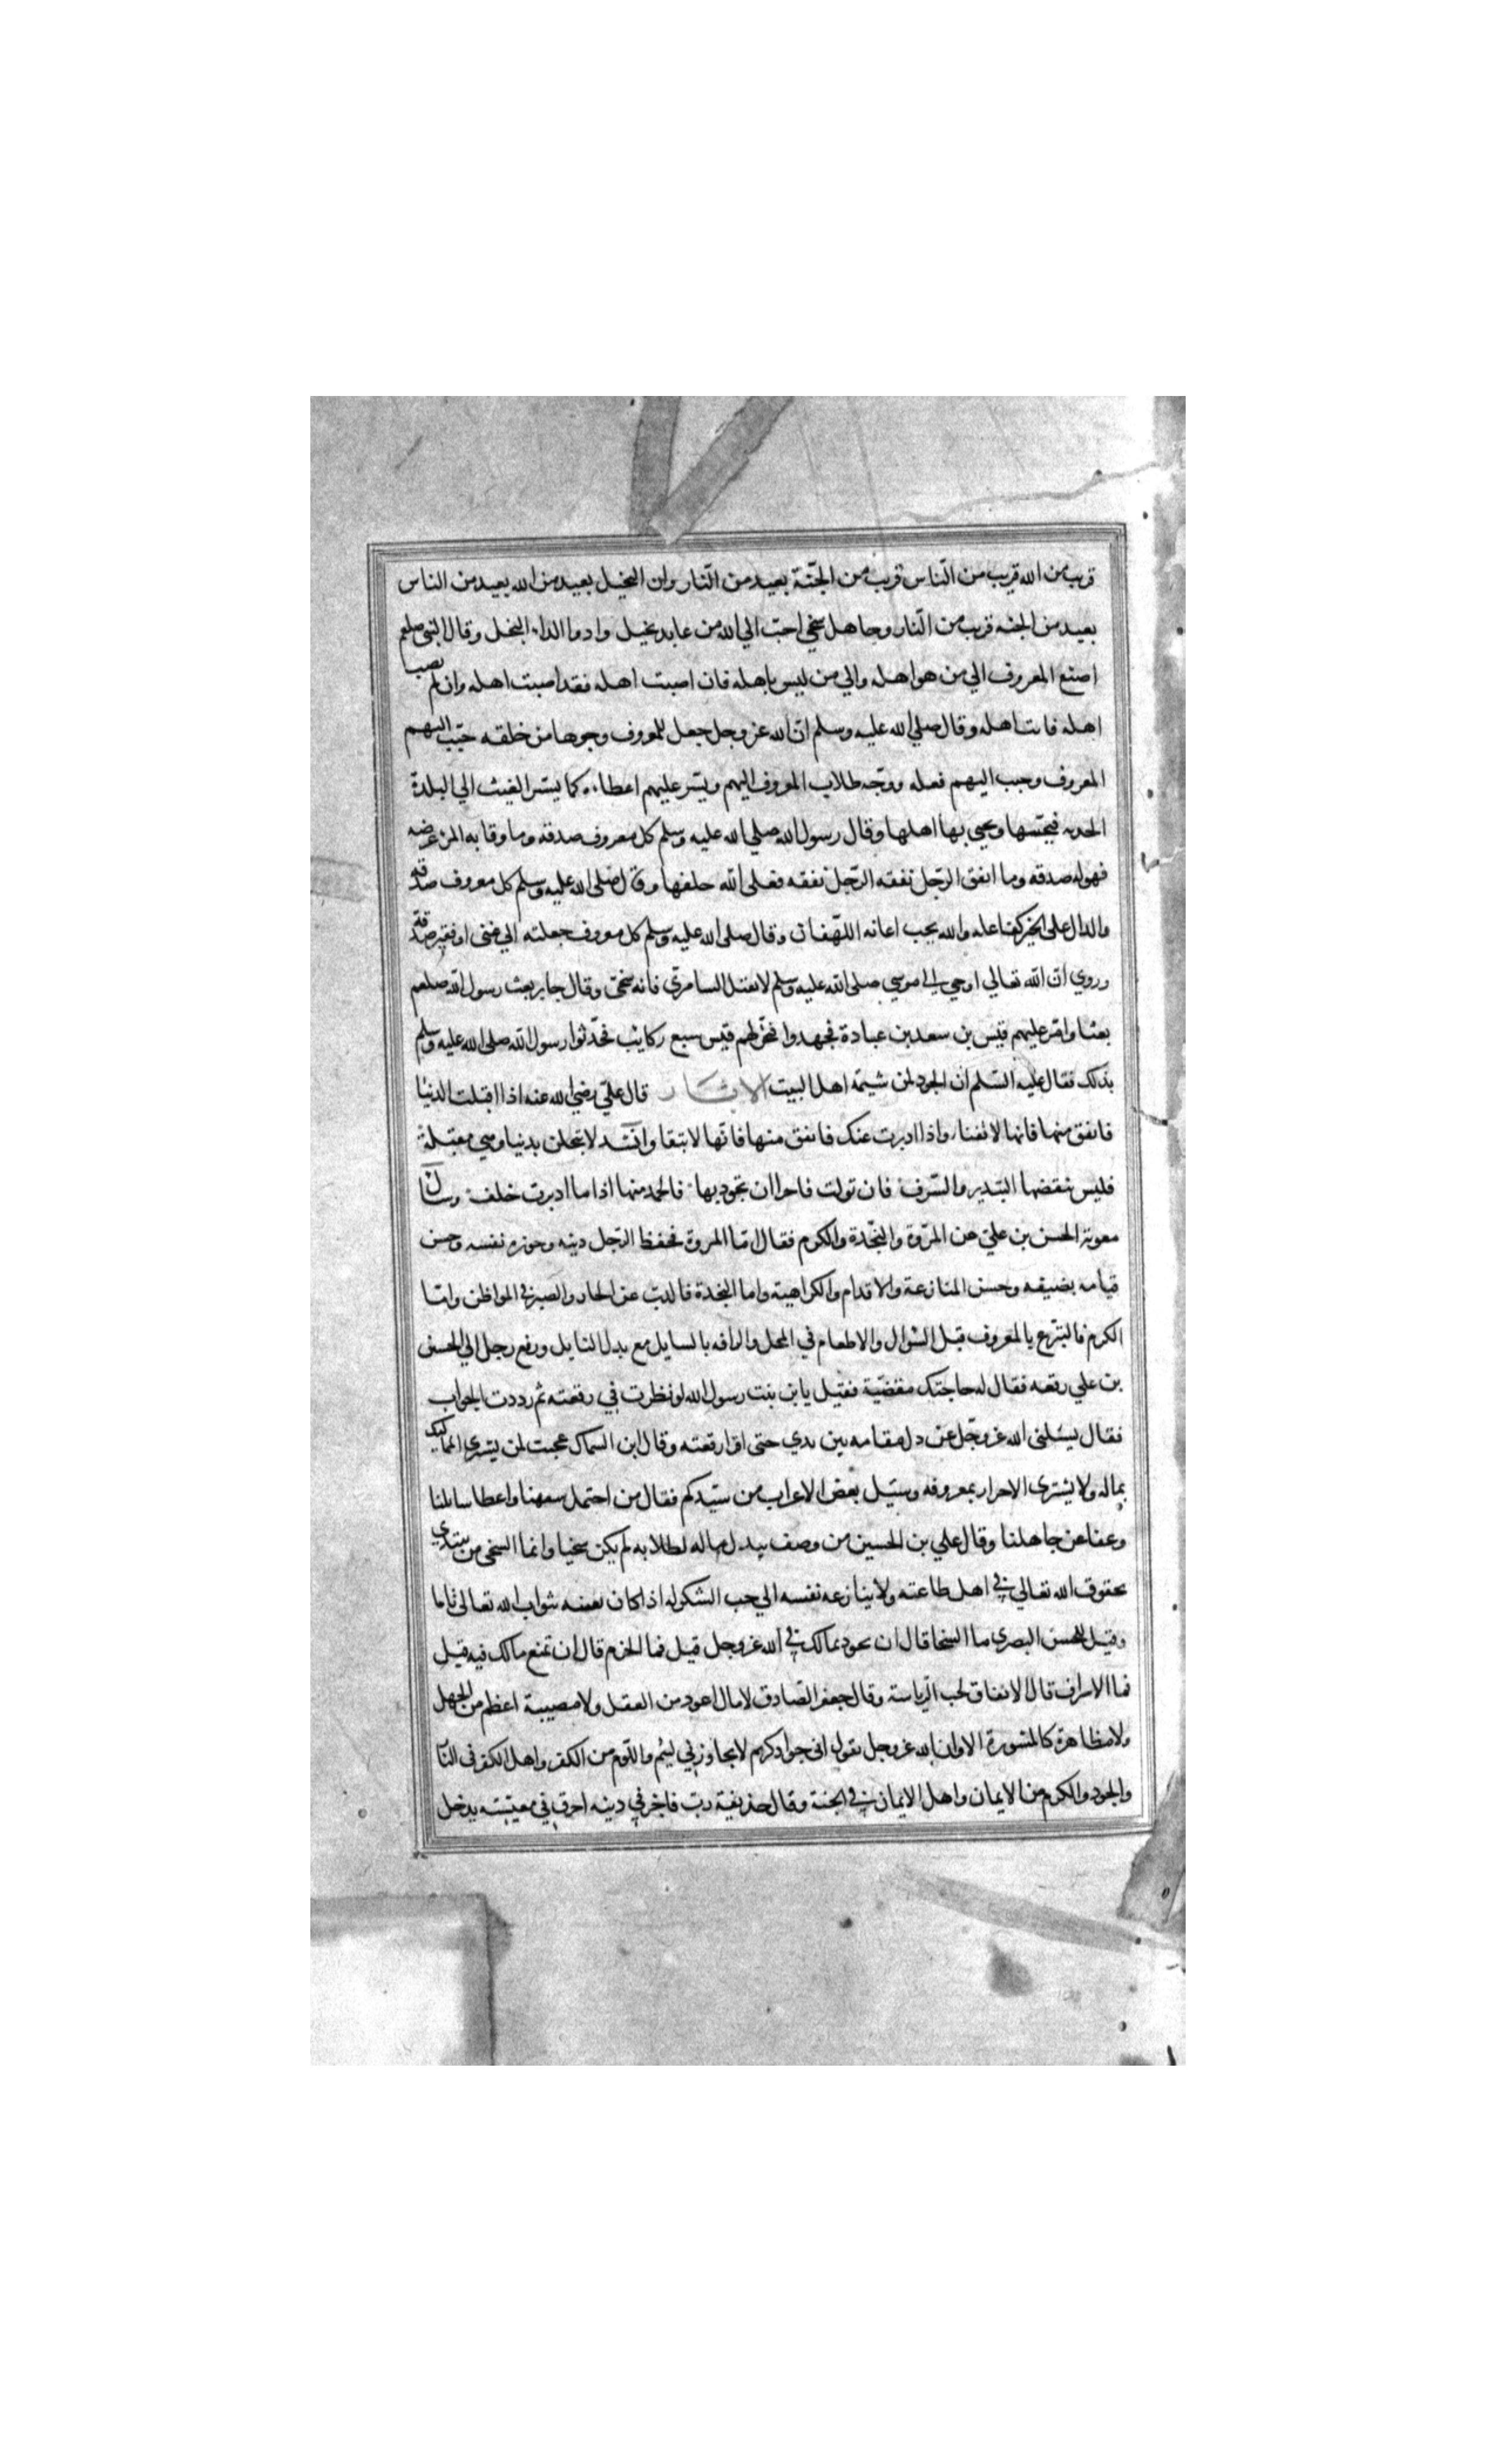 قريب من الله قريب من النّاس قريب من الجنّة بعيد من النّار وان البخيل بعيد من الله بعيد من الناس
بعيد من الجنه قريب من النّار وجاهل سخي احبّ الي الله من عابد بخيل وادوا الداء البخل وقال النبي صلعم
اصنع المعروف الي من هو اهله والي من ليس باهله فان اصبت اهله فقد اصبت اهله وان لم تصب
اهله فانت اهله وقال صلي الله عليه وسلم انّ الله عز وجل جعل للمعروف وجوها من خلقه حبّب اليهم
المعروف وحبب اليهم فعله ووجّه طلاب المعروف اليهم ويسّر عليهم اعطاءه كما يسّر الغيث الي البلدة
الجدبه فيحيها ويحيي بها اهلها وقال رسول الله صلي الله عليه وسلم كل معروف صدقه وما وقا به المرء عرضه
فهو له صدقه وما انفق الرّجل نفقه الرّجل نفقه فعلي الله خلفها وقال صلى الله عليه وسلم كل معروف صدقه
والدال على الخير كفاعله والله يحب اعانه اللهفان وقال صلى الله عليه وسلم كل معروف جعلته الي غني او فقير صدقة
وروي انّ الله تعالي اوحي الي موسي صلى الله عليه وسلم لا تقتل السامريّ فانه سخيّ وقال جابر بعث رسول الله صلعم
بعثا وامّر عليهم قيس بن سعد بن عبادة فجهدوا فنحر لهم قيس سبع ركائب فحدّثوا رسول الله صلى الله عليه وسلم
بذلك فقال عليه السّلم ان الجود لمن شيمة اهل البيت الاثار قال عليّ رضي الله عنه اذا اقبلت الدنيا
فانفق منها فانها لا تفنا واذا ادبرت عنك فانفق منها فانّها لا تبقا وانشد لا تبخلن بدنيا وهي مقبلة
فليس ينقضها التبذير والسّرف فان تولت فاحرا ان تجود بها فالحمد منها اذا ما ادبرت خلف وسال
معوية الحسن بن علي عن المرّوة والنّجدة والكرم فقال امّا المروة فحفظ الرّجل دينه وحوزه نفسه وحسن
قيامه بضيفه وحسن المنازعة والاقدام والكراهية واما النجدة فالذبّ عن الجار والصبر في المواطن وامّا
الكرم فالتبرّع بالمعروف قبل السّوال والاطعام في المحل والرافه بالسايل مع بذل النايل ورفع رجل الي الحسن
بن علي رقعه فقال له حاجتك مقضيّة فقيل يا بن بنت رسول الله لو نظرت في رقعته ثم رددت الجواب
فقال يسئلني الله عز وجّل عن ذل مقامه بين يدي حتى اقرا رقعته وقال ابن السماك عجبت لمن يشتري المماليك
بماله ولا يشتري الاحرار بمعروفه وسئيل بعض الاعراب من سيّدكم فقال من احتمل سفهنا واعطا سائلنا
وعفا عن جاهلنا وقال علي بن الحسين من وصف ببذل ماله لطلابه لم يكن سخيا وانما السخي من يبتدي
بحقوق الله تعالي في اهل طاعته ولا ينازعه نفسه الي حب الشكر له اذا كان يقينه بثواب الله تعالى تاما
وقيل للحسن البصري ما السخا قال ان تجود بمالك في الله عز وجل قيل فما الحزم قال ان تمنع مالك فيه قيل
فما الاسراف قال الانفاق لحب الرّياسة وقال جعفر الصّادق لا مال اعود من العقل ولا مصيبة اعظم من الجهل
ولا مظاهرة كالمشورة الا وان الله عز وجل يقول اني جواد كريم لا يجاوزني ليئم واللّوم من الكفر واهل الكفر في النّا
والجود والكرم من الايمان واهل الايمان في الجنة وقال حذيفة ربّ فاجر في دينه اخرق في معيشته يدخل